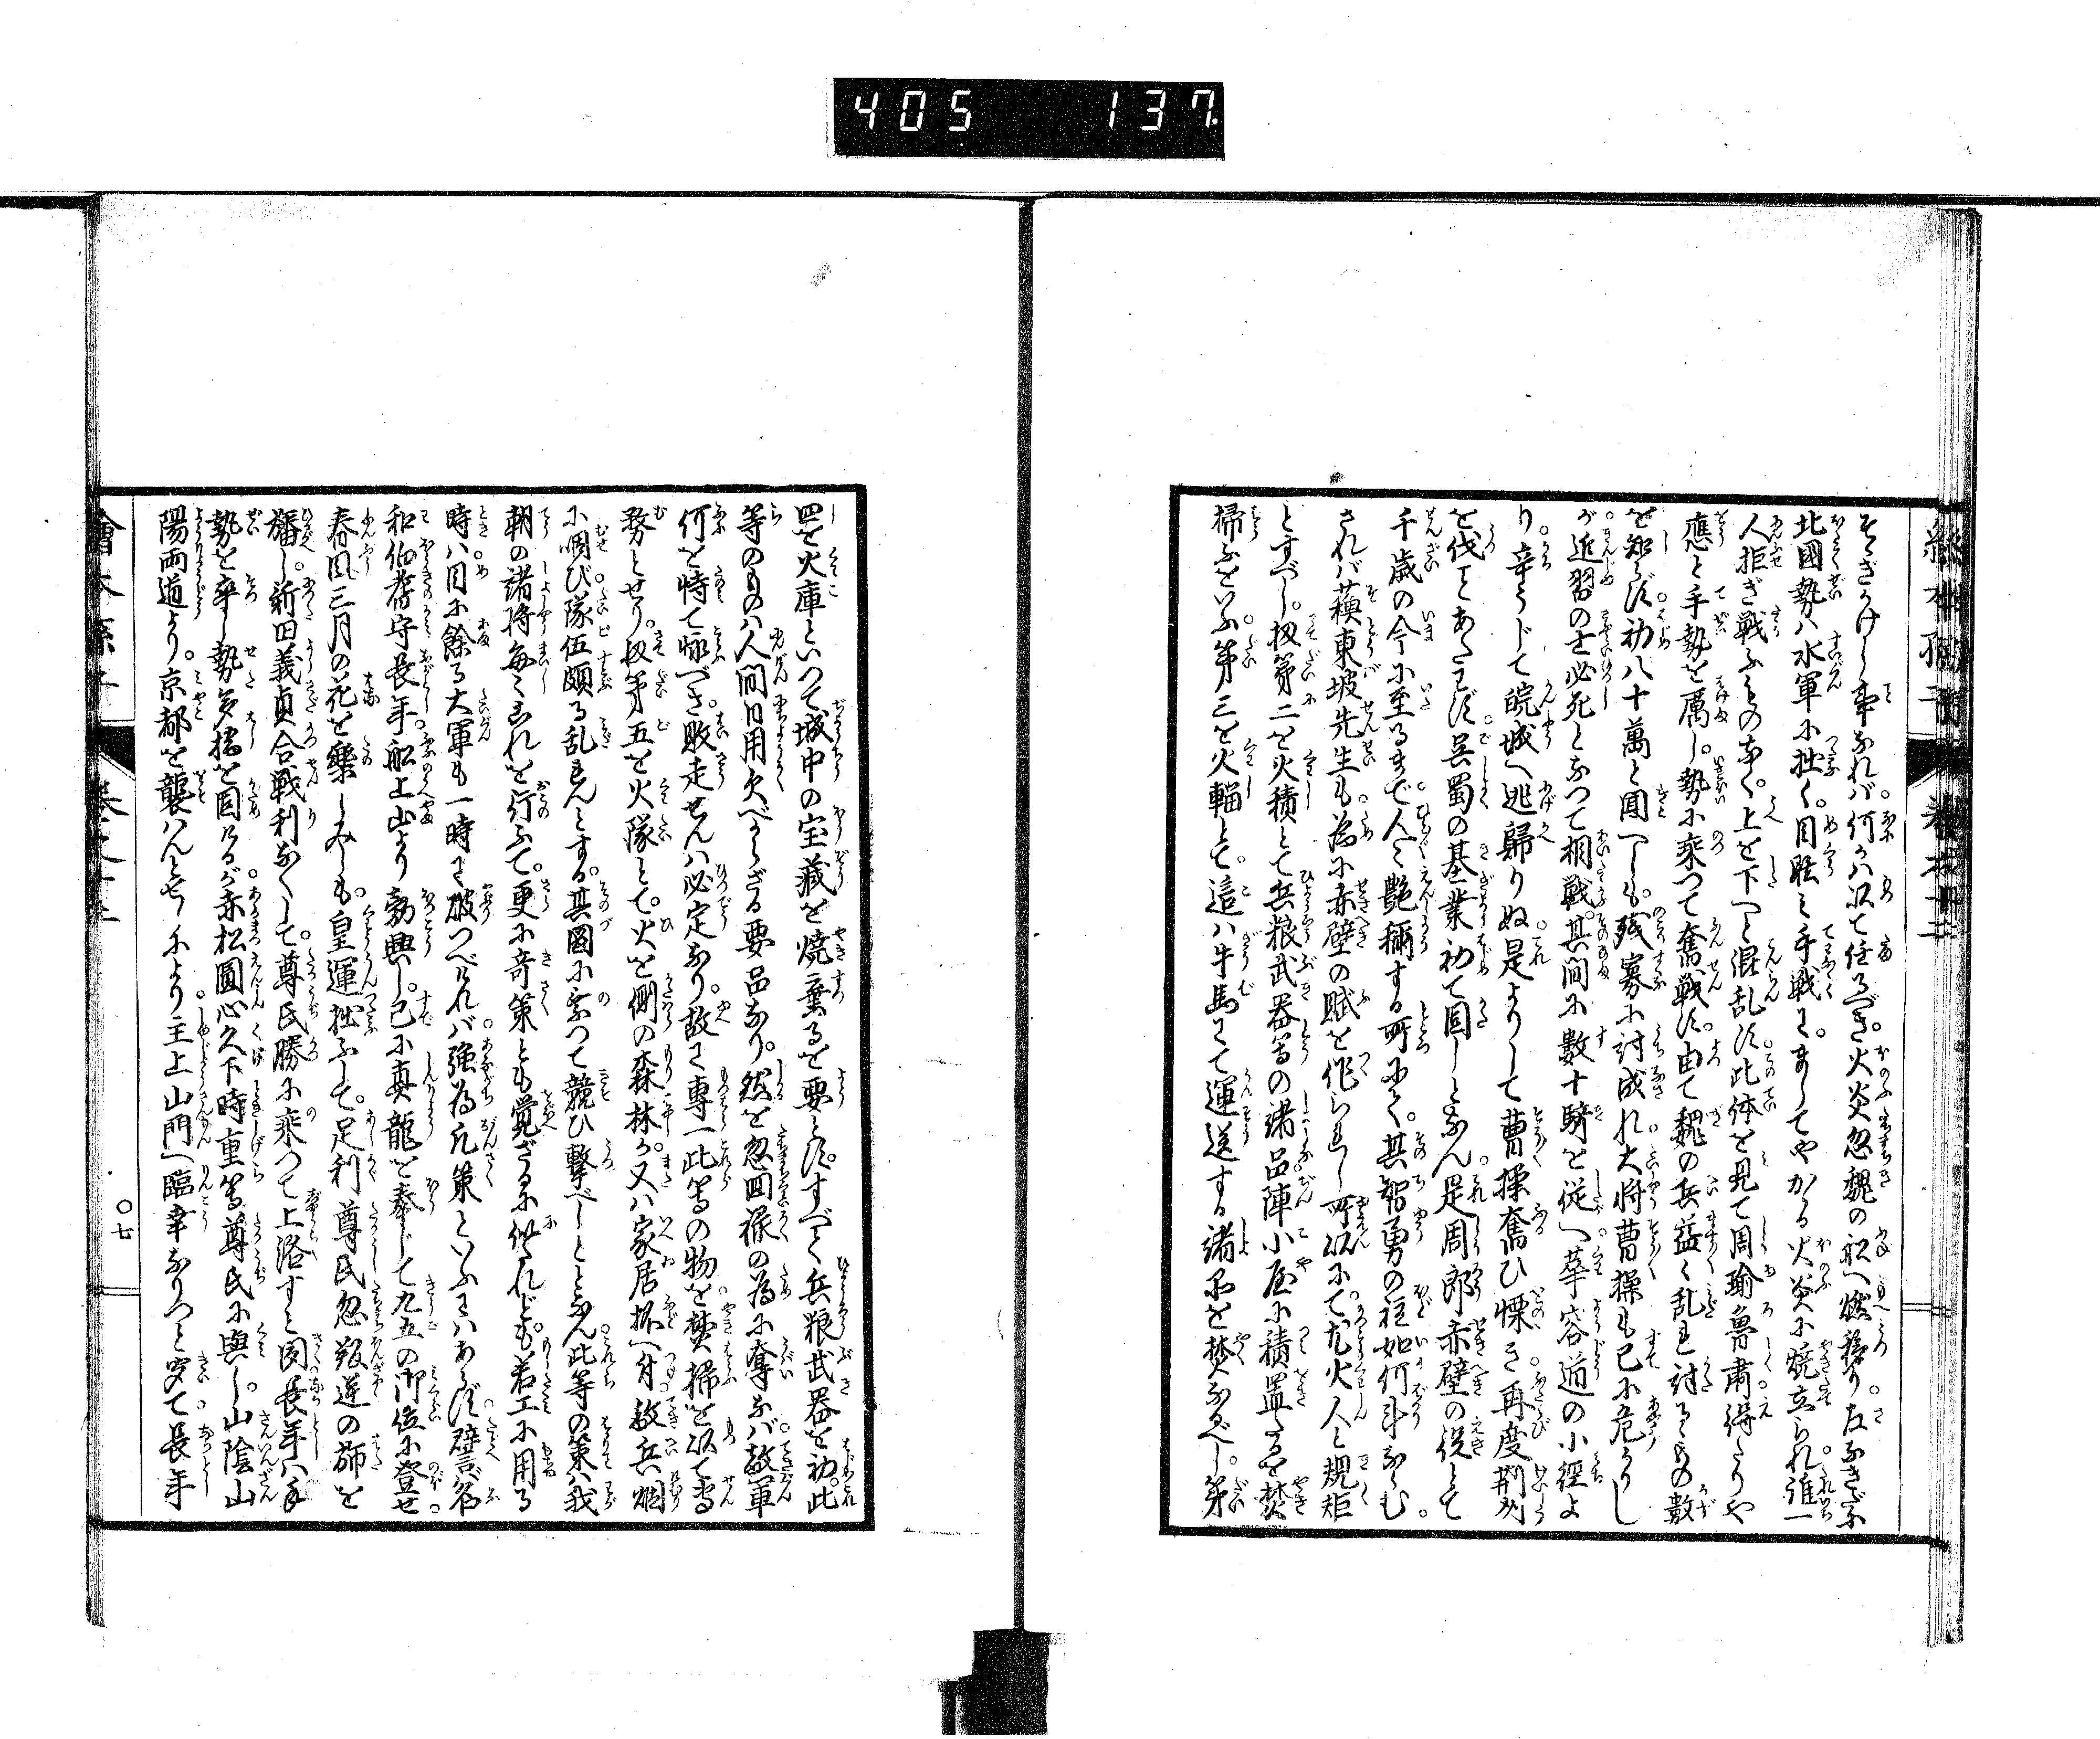 405 137
そゝぎかけし事なれバ何かハ以て住るべき。火炎忽魏の舩へ燃移り。左なきだに
北國勢ハ水軍に拙く。目眩ミ手戦き。ましてやかる火炎に焼立られ。誰一
人拒ぎ戦ふものなく。上を下へと混乱す。此体を見て周瑜魯肅得たりや
應と手勢を厲し。勢に乗つて奮戦す。由て魏の兵益々乱れ討るゝもの数
を知らず。初八十萬と聞へしも。残寡に討成れ。大将曹操も已に危かりし
が。近習の士必死となつて相戦。其间に数十騎を従へ。華容道の小徑よ
り。辛うじて皖城へ逃歸りぬ。是よりして曹操奮ひ慄き。再度荆州
を伐ことあたはず。呉蜀の基業初て固しとなん。是周郎赤壁の役とて
千歳の今に至るまで。人々艶稱する所にて。其智勇の程如何斗ならむ。
されバ蘓東坡先生も。為に赤壁の賦を作られし所以にて。尤火人と規矩
とすべし。扨第二を火積とて。兵粮武器等の諸品。陣小屋に積置たるを焚
掃ふをいふ。第三を火輜とて。這ハ牛馬にて運送する諸品を焚なるべし。第
四を火庫といつて城中の宝蔵を焼棄るを要とす。すべて兵粮武器を初。此
等のものハ人間日用欠べからざる要品なり。然を忽回禄の為に奪なバ。敵軍
何を恃て怺べき。敗走せんハ必定なり。故に専一此等の物を。焚掃を以て当
務とせり。扨第五を火隊とて。火を側の森林か。又ハ家居抔へ付。敵兵烟
に咽び。隊伍頗る乱れんとする。其圖に乗つて競ひ撃べしとなん。此等の策ハ我
朝の諸将毎々これを行ふて。更に奇策とも覚ざるに似れども。若工に用る
時ハ。目に餘る大軍も一時に破つべけれバ。強為凡策といふにハあらず。譬バ名
和伯耆守長年。舩上山より勃興し。已に真龍を奉じて九五の御位に登せ。
春風三月の花を樂しみしも。皇運拙ふして。足利尊氏忽叛逆の旆を
飜し。新田義貞合戦利なくして。尊氏勝に乗つて上洛すと聞。長年ハ手
勢を卒し勢多橋を固けるが。赤松圓心久下時重等。尊氏に與し。山陰山
陽両道より。京都を襲ハんとせしにより。主上山門へ臨幸なりつと聞て。長年
繪本孫子 巻之十二 〇七